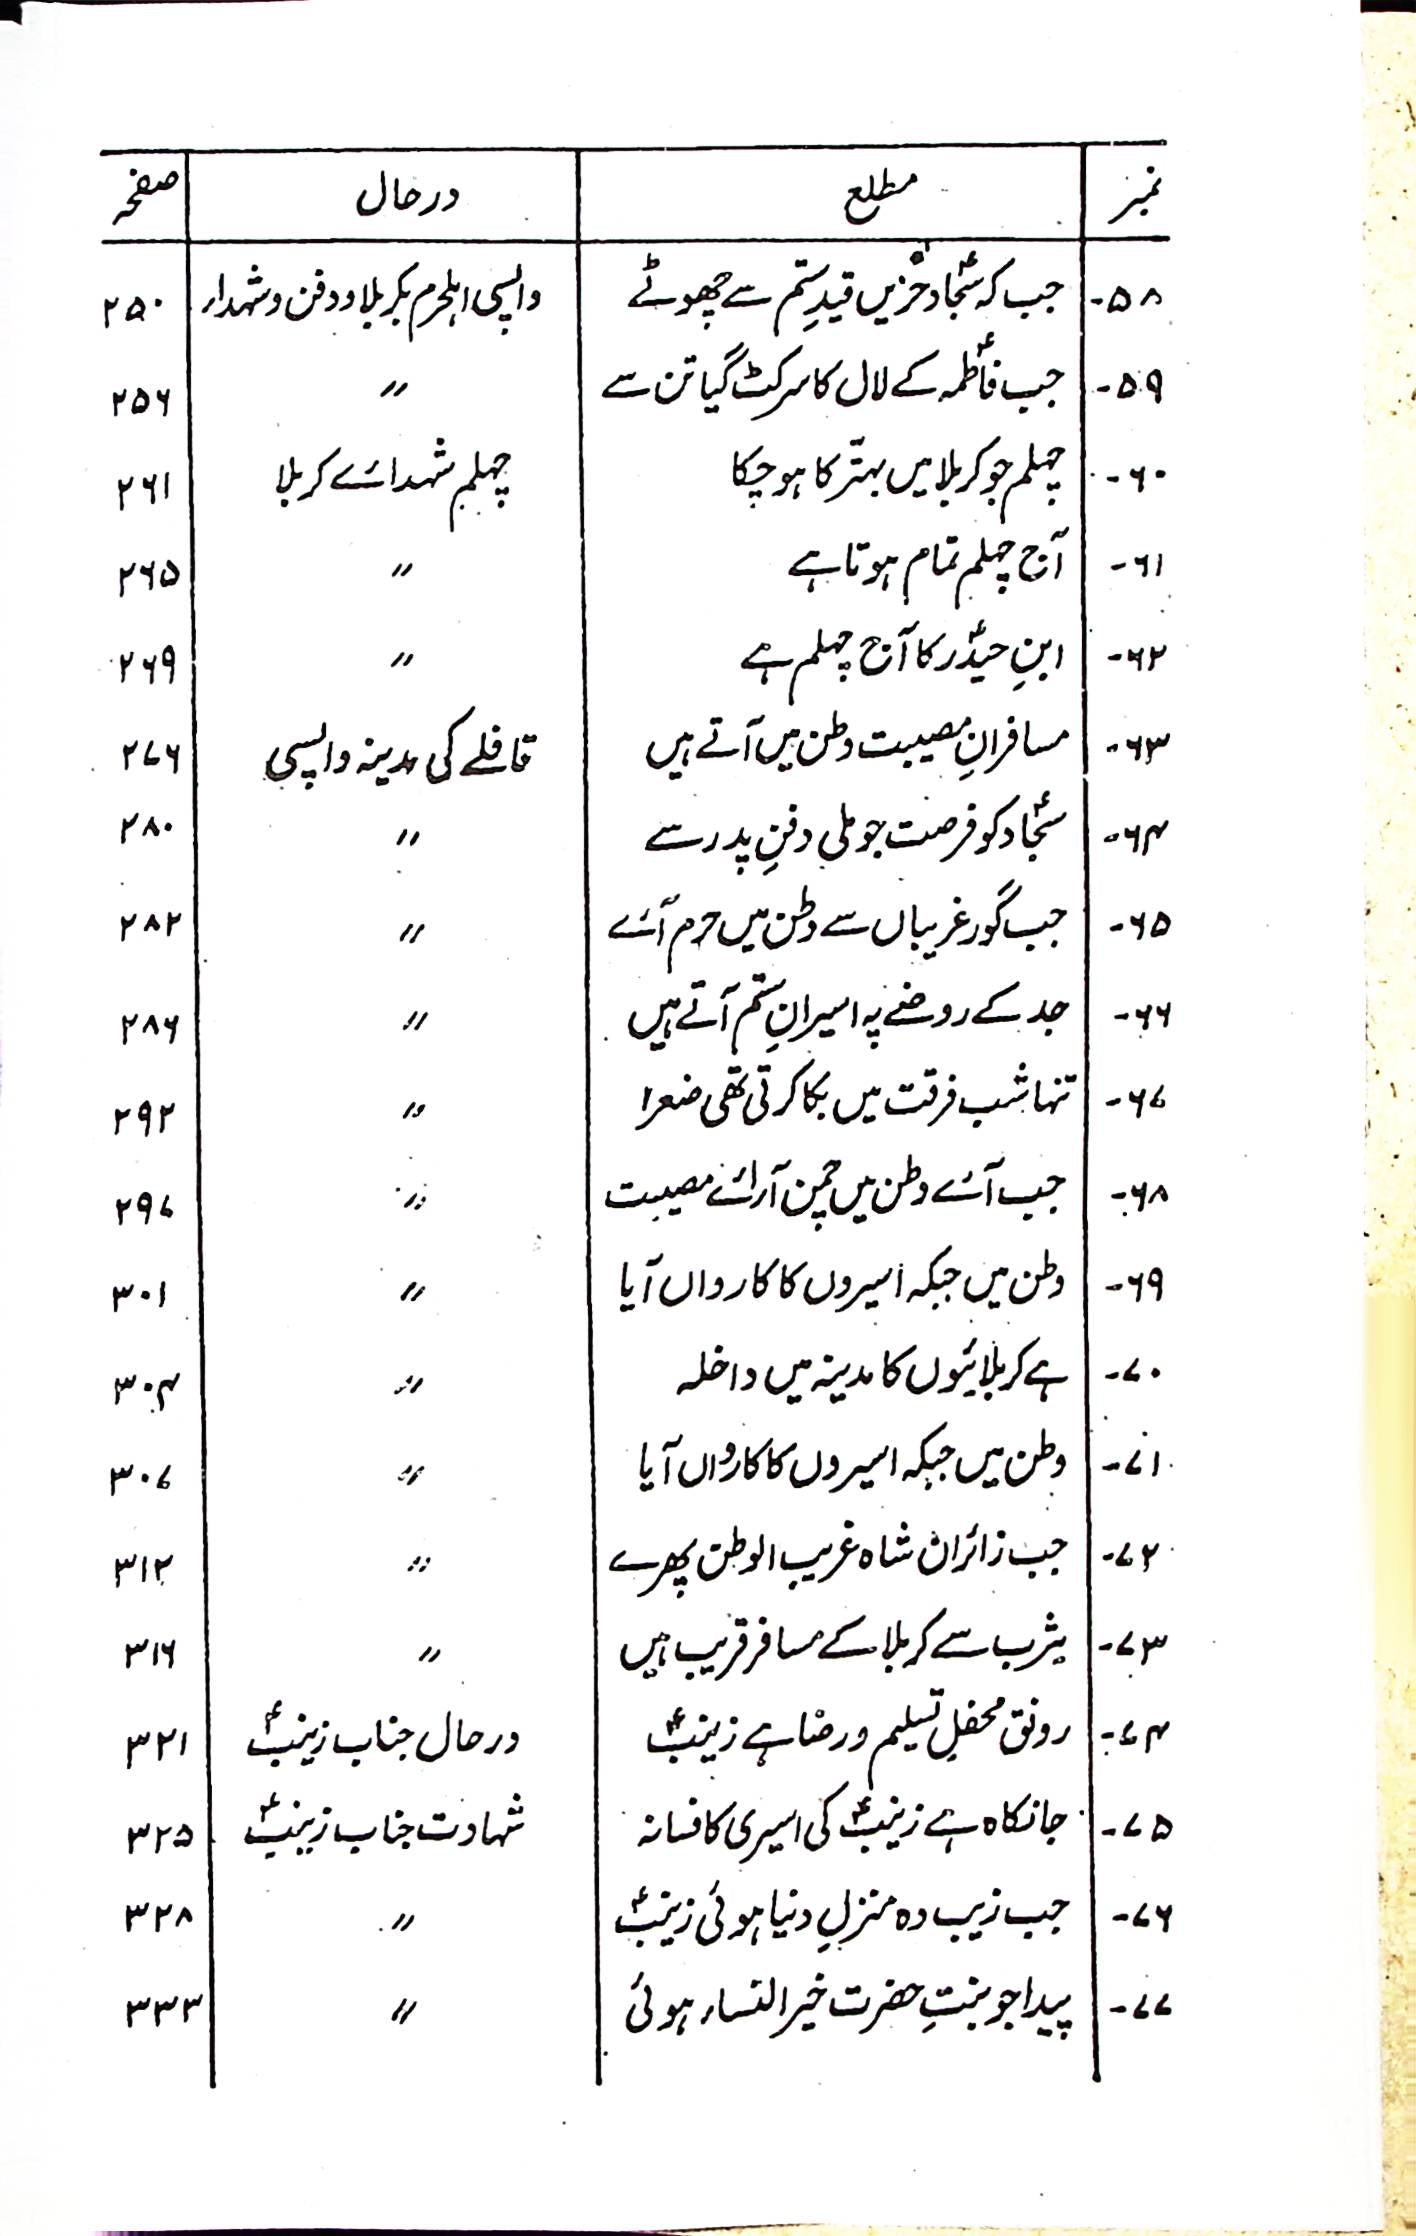 نمبر مطلع درحال صفحہ
۵۸- جب کہ سجادؑ حزیں قیدِ ستم سے چھوٹے واپسی اہلحرم بکربلا و دفن و شہداء ۲۵۰
۵۹- جب فاطمہؑ کے لال کا سر کٹ گیا تن سے 〃 ۲۵۶
۶۰- چہلم جو کربلا میں بہتّر کا ہو چکا چہلم شہدائے کربلا ۲۶۱
۶۱- آج چہلم تمام ہوتا ہے 〃 ۲۶۵
۶۲- ابنِ حیدرؑ کا آج چہلم ہے 〃 ۲۶۹
۶۳- مسافرانِ مصیبت وطن میں آتے ہیں قافلے کی مدینہ واپسی ۲۷۶
۶۴- سجادؑ کو فرصت جو ملی دفنِ پدر سے 〃 ۲۸۰
۶۵- جب گور غریباں سے وطن میں حرم آئے 〃 ۲۸۲
۶۶- جد کے روضے پہ اسیرانِ ستم آتے ہیں 〃 ۲۸۶
۶۷- تنہا شب فرقت میں بکا کرتی تھی صغرا 〃 ۲۹۲
۶۸- جب آئے وطن میں چمن آرائے مصیبت 〃 ۲۹۷
۶۹- وطن میں جبکہ اسیروں کا کارواں آیا 〃 ۳۰۱
۷۰- ہے کربلائیوں کا مدینہ میں داخلہ 〃 ۳۰۴
۷۱- وطن میں جبکہ اسیروں کا کارواں آیا 〃 ۳۰۷
۷۲- جب زائران شاہ غریب الوطن پھرے 〃 ۳۱۲
۷۳- یثرب سے کربلا کے مسافر قریب ہیں 〃 ۳۱۶
۷۴- رونق محفلِ تسلیم و رضا ہے زینبؑ درحال جناب زینبؑ ۳۲۱
۷۵- جانکاہ ہے زینبؑ کی اسیری کا فسانہ شہادت جناب زینبؑ ۳۲۵
۷۶- جب زیب دہ منزلِ دنیا ہوئی زینبؑ 〃 ۳۲۸
۷۷- پیدا جو بنتِ حضرت خیر النساء ہوئی 〃 ۳۳۳